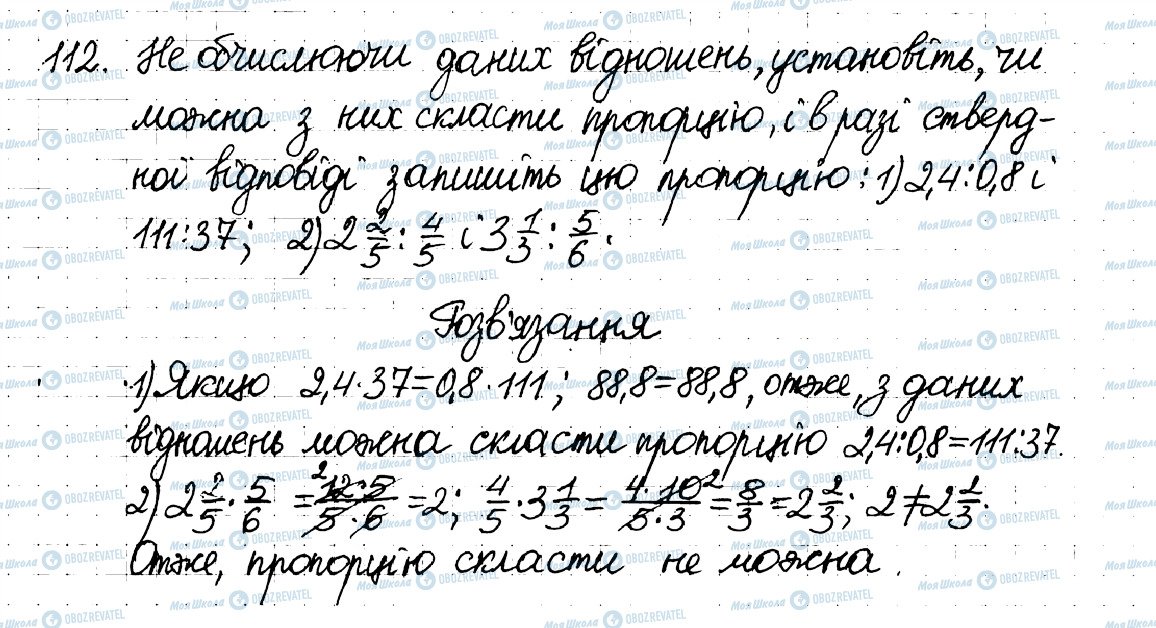 112. Не обчислюючи даних відношень, установіть, чи
можна з них скласти пропорцію, і в разі стверд-
ної відповіді запишіть цю пропорцію: 1) 2,4:0,8 і
111:37; 2) 2 2/5 : 4/5 і 3 1/3 : 5/6.
Розв'язання
1) Якщо 2,4·37=0,8·111; 88,8=88,8, отже, з даних
відношень можна скласти пропорцію 2,4:0,8=111:37.
2) 2 2/5 · 5/6 = 12·5/5·6 = 2; 4/5 · 3 1/3 = 4·10/5·3 = 8/3 = 2 2/3; 2 ≠ 2 2/3.
Отже, пропорцію скласти не можна.
Моя Школа OBOZREVATEL